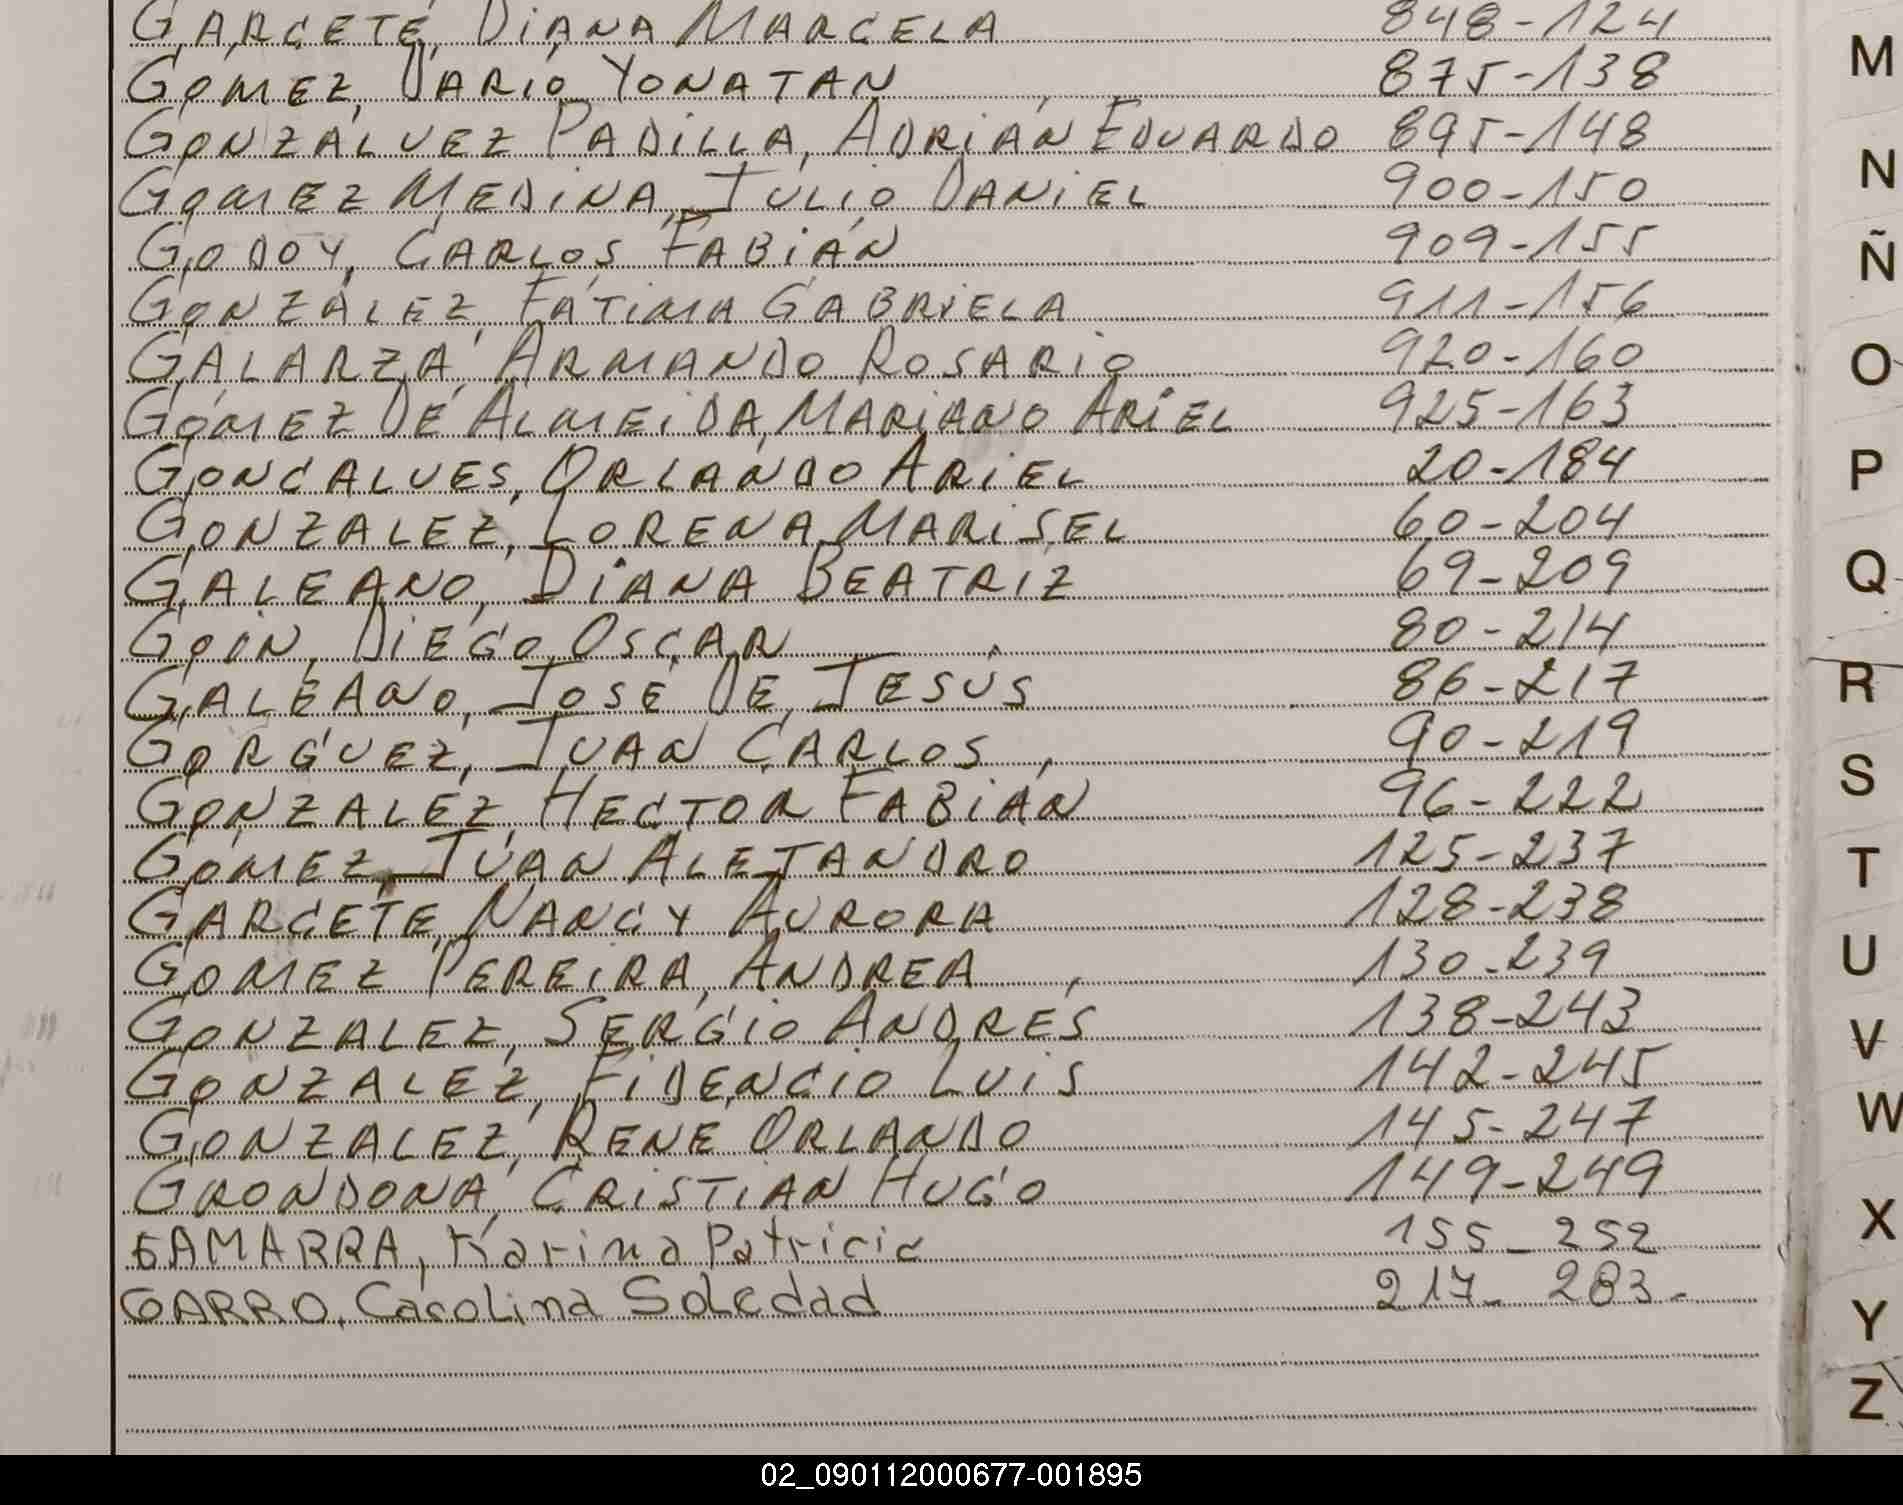 GARCETE, DIANA MARCELA 848-124
GOMEZ, DARIO YONATAN 875-138
GONZÁLVEZ PADILLA, ADRIÁN EDUARDO 895-148
GOMEZ MEDINA, JULIO DANIEL 900-150
GODOY, CARLOS FABIÁN 909-155
GONZÁLEZ, FÁTIMA GABRIELA 911-156
GALARZA, ARMANDO ROSARIO 920-160
GOMEZ DE ALMEIDA, MARIANO ARIEL 925-163
GONCALVES, ORLANDO ARIEL 20-184
GONZALEZ, LORENA MARISEL 60-204
GALEANO, DIANA BEATRIZ 69-209
GOIN, DIEGO OSCAR 80-214
GALEANO, JOSÉ DE JESÚS 86-217
GORGUEZ, JUAN CARLOS 90-219
GONZALEZ, HECTOR FABIÁN 96-222
GOMEZ, JUAN ALEJANDRO 125-237
GARCETE, NANCY AURORA 128-238
GOMEZ PEREIRA, ANDREA 130-239
GONZALEZ, SERGIO ANDRÉS 138-243
GONZALEZ, FIDENCIO LUIS 142-245
GONZALEZ, RENE ORLANDO 145-247
GRONDONA, CRISTIAN HUGO 149-249
GAMARRA, Karina Patricia 155-252
GARRO, Carolina Soledad 217-283-
M
N
Ñ
O
P
Q
R
S
T
U
V
W
X
Y
Z
02_090112000677-001895